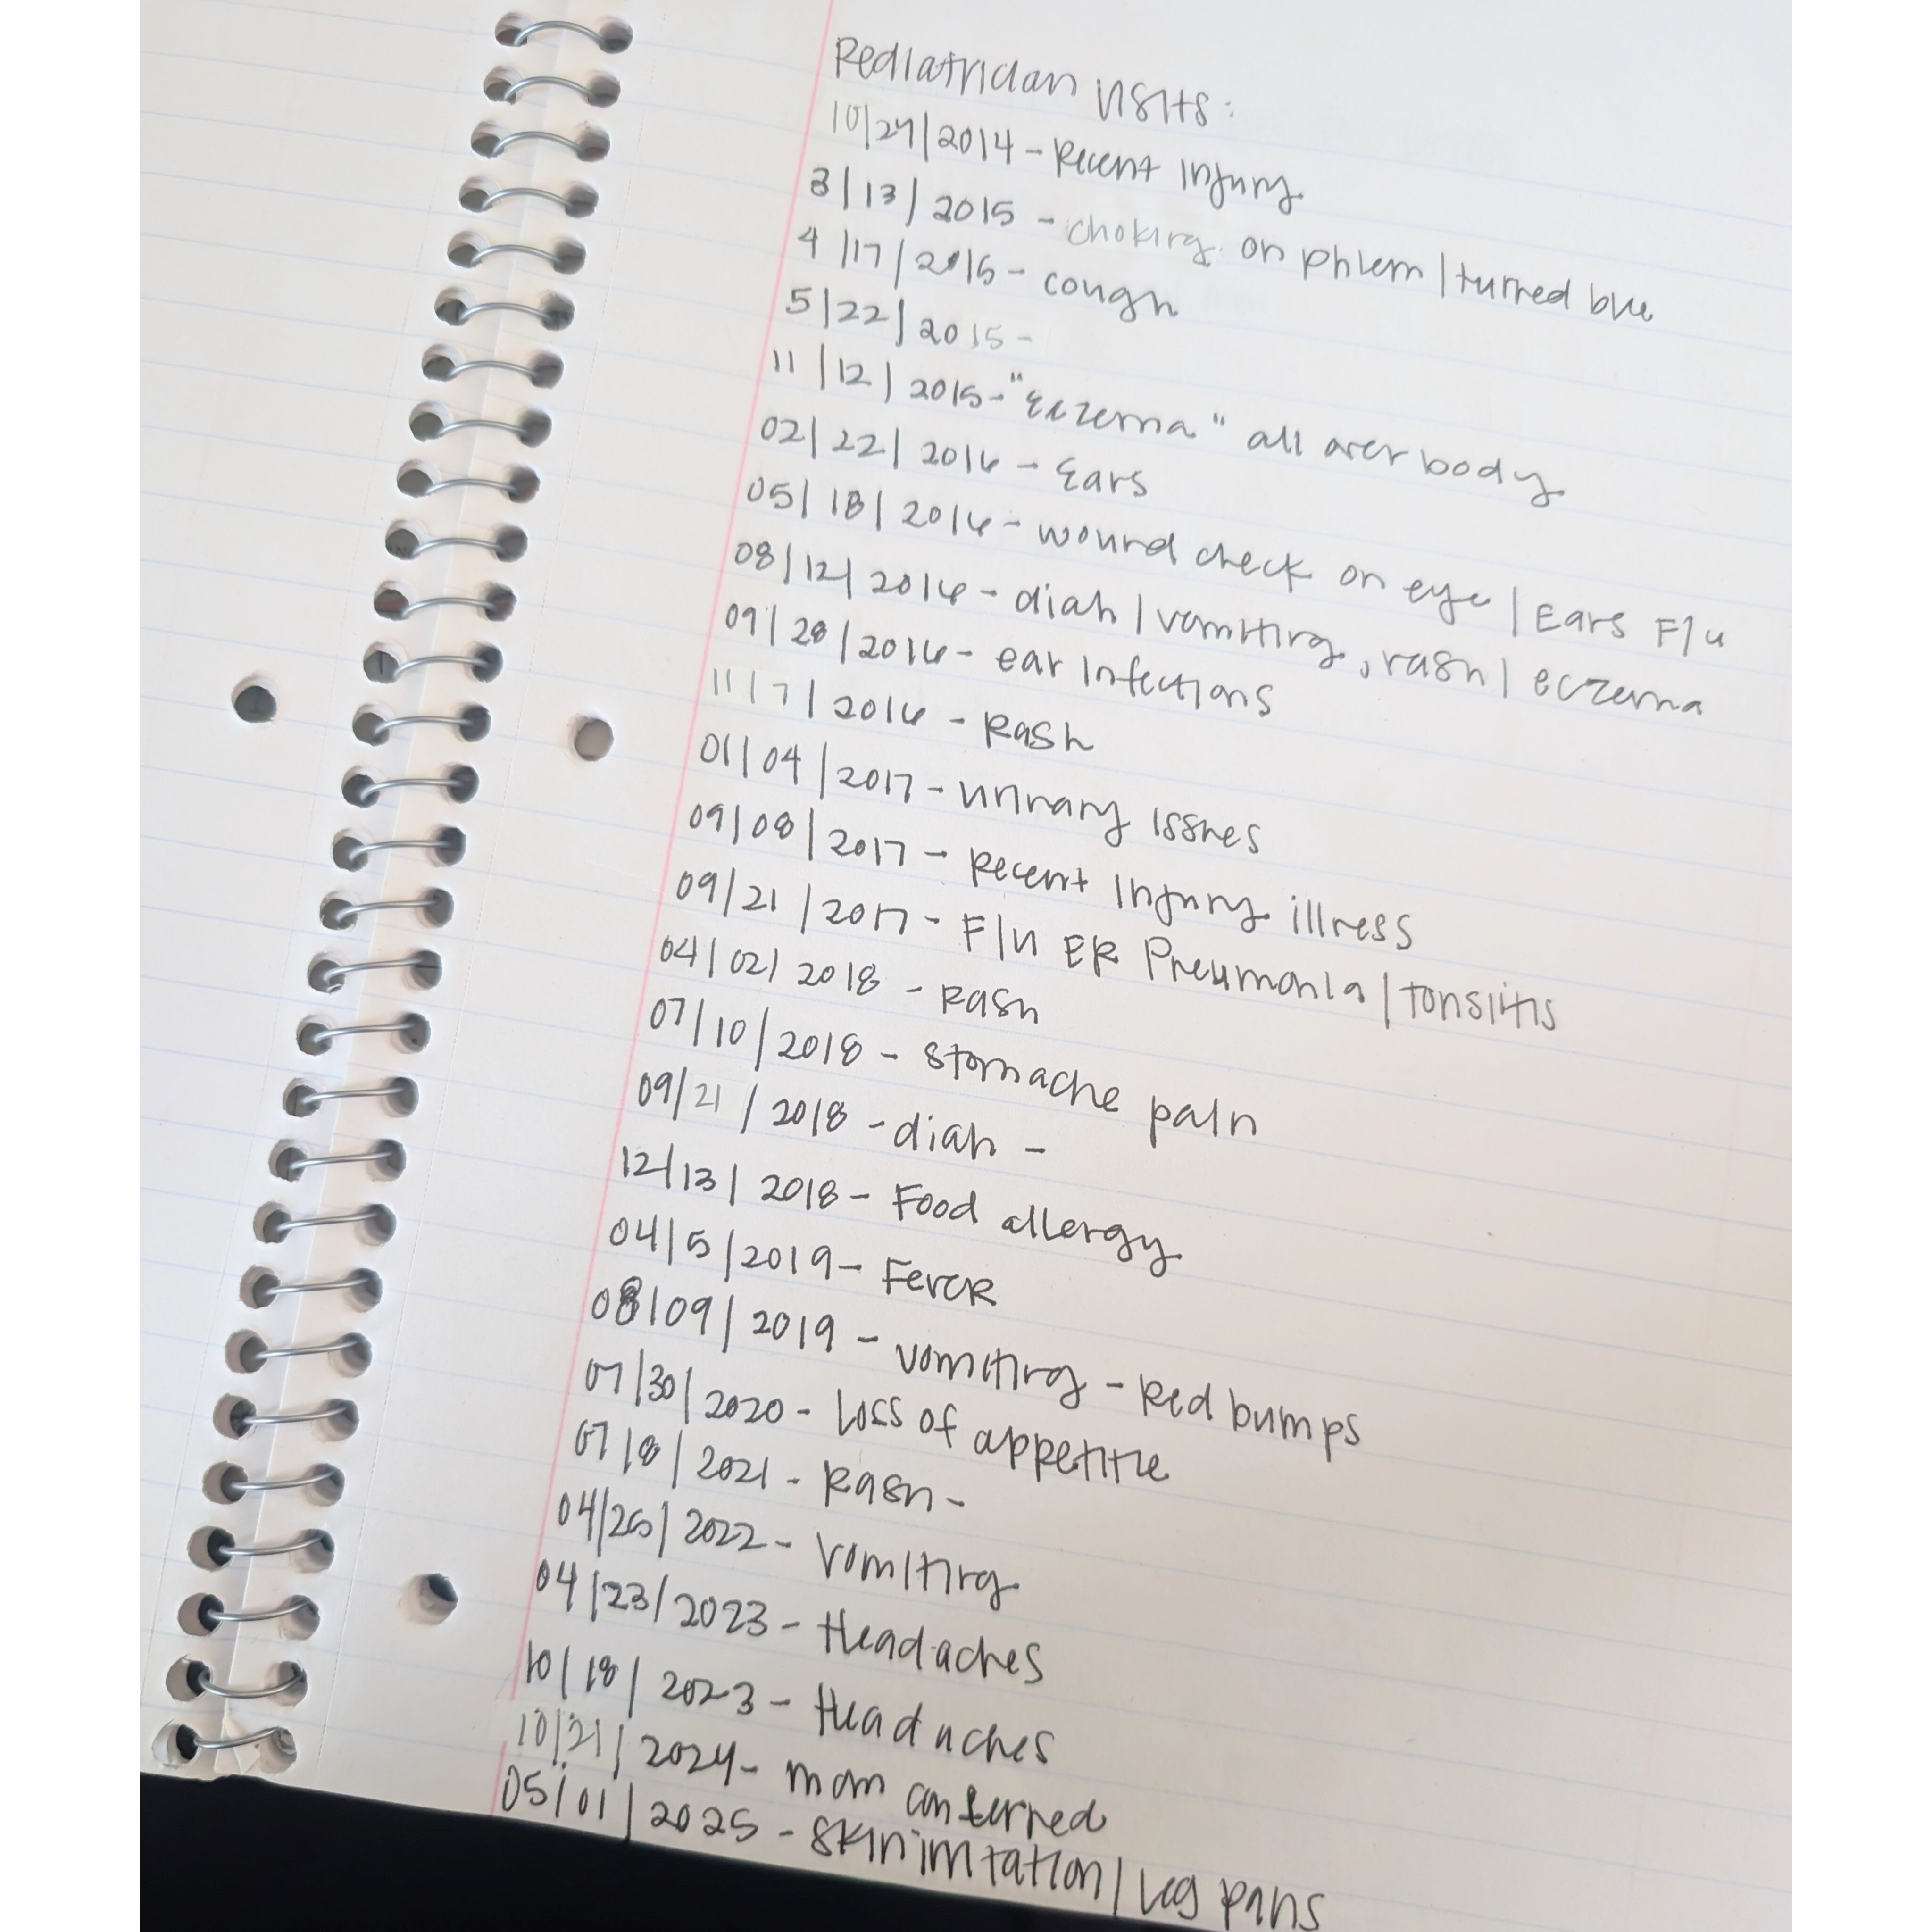 Pediatrician visits:
10/27/2014 - Recent Injury
3/13/2015 - choking on phlem/turned blue
4/17/2015 - cough
5/22/2015 -
11/12/2015 - "Eczema" all over body
02/22/2016 - Ears
05/18/2016 - wound check on eye/Ears F/u
08/12/2016 - diah/vomiting, rash/eczema
09/28/2016 - ear infections
11/7/2016 - Rash
01/04/2017 - urinary issues
09/08/2017 - Recent Injury illness
09/21/2017 - F/u ER Pneumonia/tonsilitis
04/02/2018 - Rash
07/10/2018 - Stomache pain
09/21/2018 - diah -
12/13/2018 - Food allergy
04/5/2019 - FeveR
08/09/2019 - vomiting - Red bumps
07/30/2020 - Loss of appetite
07/8/2021 - Rash -
04/26/2022 - Vomiting
04/23/2023 - Headaches
10/18/2023 - Headaches
10/21/2024 - mom conserned
05/01/2025 - Skin irritation/leg pains